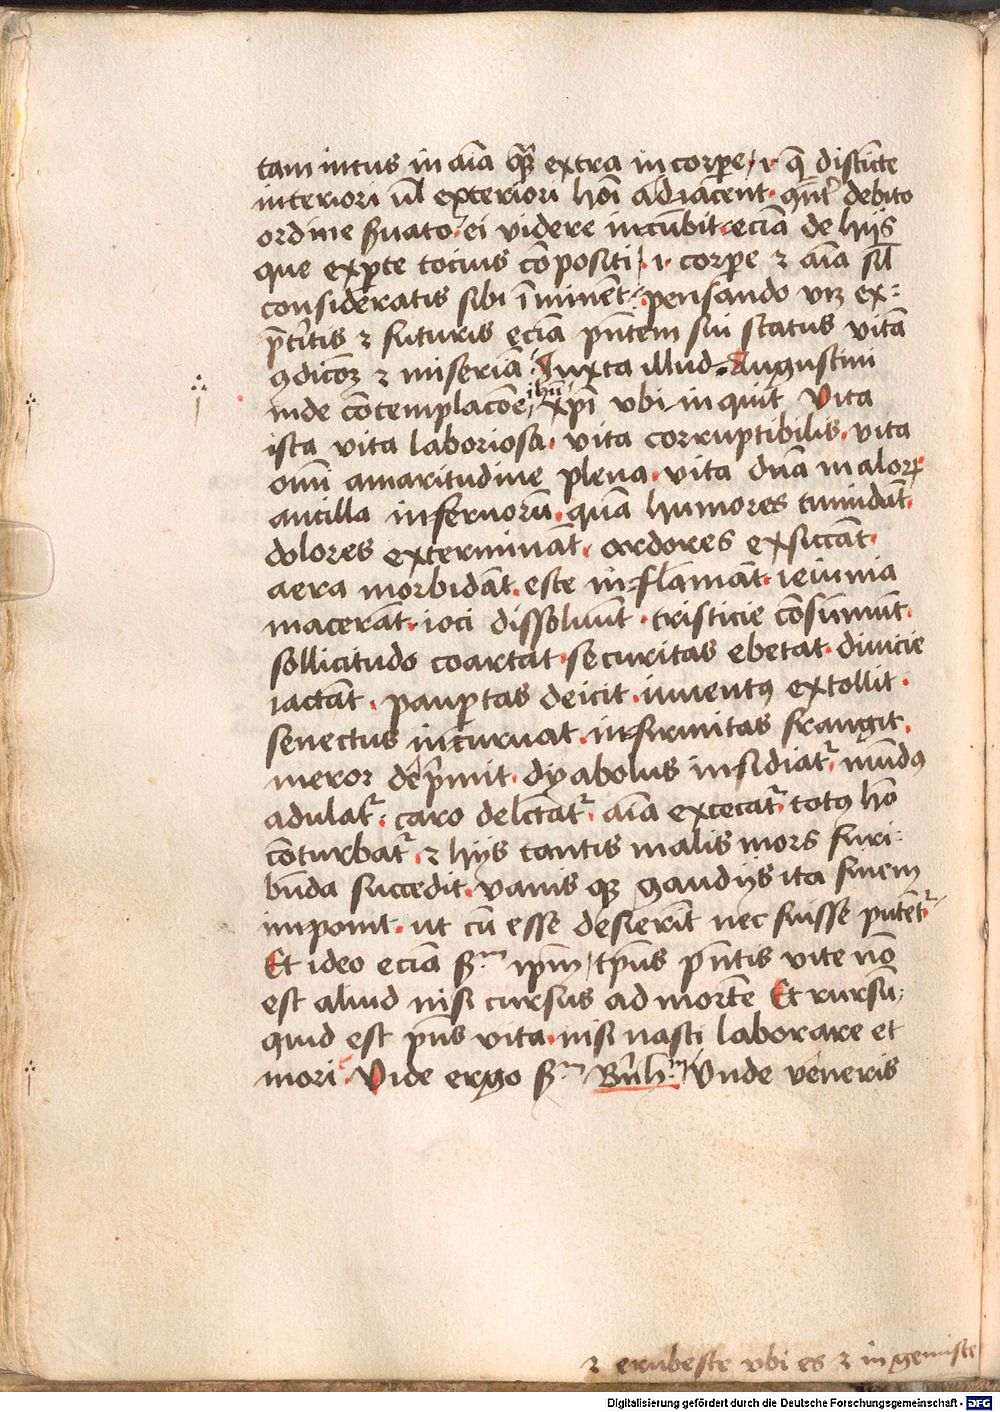 tam intus in aīa qᷓ extra in corpꝑe / ·i· q̄ distīcte
interiori uł exteriori hoī adiacent· qn̄t debito
ordine ẜuato· ei videre incūbit· eciā de hijs
que ex ꝑte tocius cōpositi / ·i· corpꝑe ⁊ aīa sił
consideratis sibi īminēt· pensando vꝫ ex
p̄teritis ⁊ futuris eciā pn̄tem sui status vitā
ꝯdicōꝫ ⁊ miseriā· Iuxta illud Augustini
inde cōtemplacōe ihū xp̄i vbi inquit Vita
ista vita laboriosa· vita corruptibilis· vita
omī amaritudine plena· vita dn̄a maloꝝ
ancilla infernorū· quā humores tumidāt·
dolores extermināt· ardores exsiccāt·
aera morbidāt· esce inflāmāt· ieiunia
macerāt· ioci dissoluūt· tristicie cōsumūt·
sollicitudo coartat· securitas ebetat· diuicie
iactāt· pauꝑtas deicit· iuuentꝰ extollit·
senectus incuruat· infirmitas frangit·
meror dep̄mit· dyabolus insidiat᷑· mūdꝰ
adulat᷑· caro delectat᷑· aīa excecat᷑· totꝰ hō
cōturbat᷑· ⁊ hijs tantis malis mors furi
būda succedit· vanis qꝫ gaudijs ita finem
imponit· ut cū esse desierīt nec fuisse putēt᷑
Et ideo eciā ẜm ip̄m / tp̄us pn̄tis vite nō
est aliud nisi cursus ad mortē Et rursū
quid est pn̄s vita· nisi nasci laborare et
mori· Vide ergo ẜm Bern̄h· Vnde veneris
⁊ erubesce vbi es ⁊ ingemisce
Digitalisierung gefördert durch die Deutsche Forschungsgemeinschaft - DFG